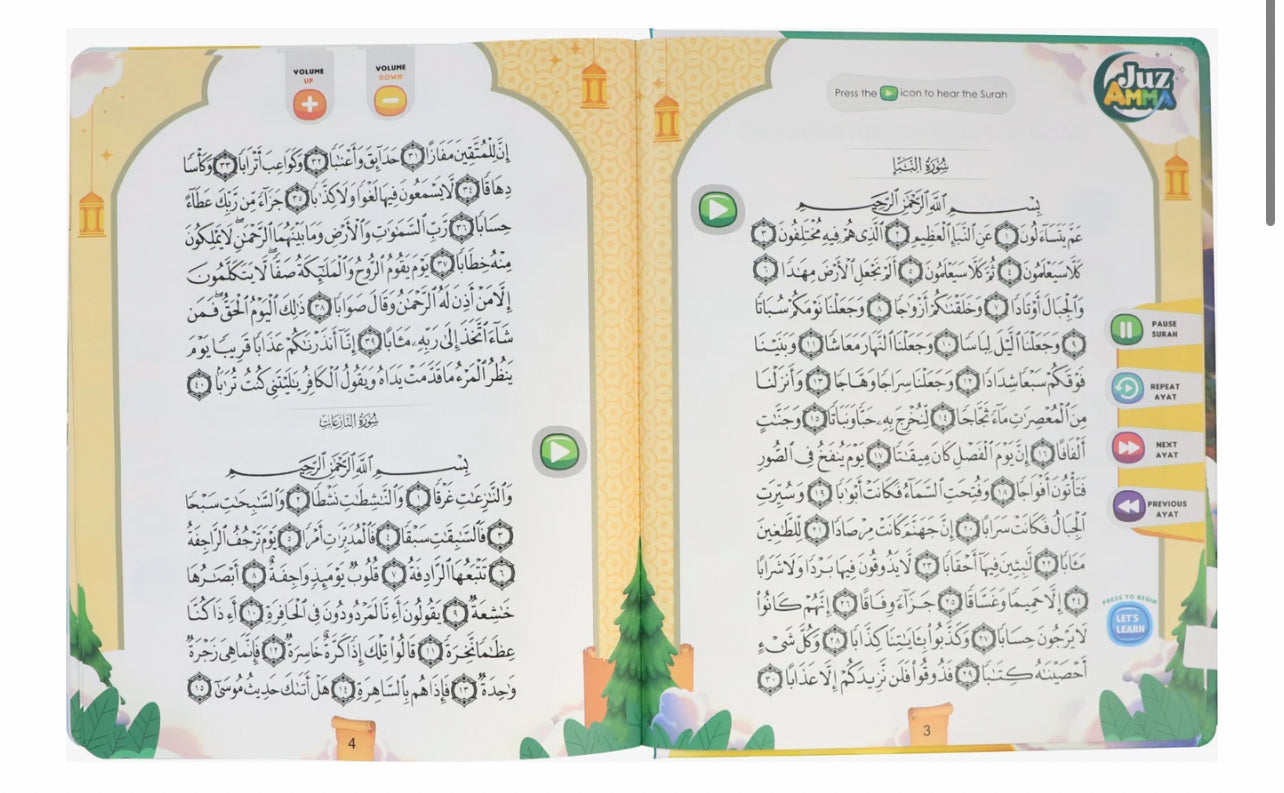 Juz
AMMA
Press the icon to hear the Surah
سُورَةُ النَّبَإِ
بِسْمِ اللَّهِ الرَّحْمَٰنِ الرَّحِيمِ
عَمَّ يَتَسَآءَلُونَ ١ عَنِ ٱلنَّبَإِ ٱلْعَظِيمِ ٢ ٱلَّذِى هُمْ فِيهِ مُخْتَلِفُونَ ٣
كَلَّا سَيَعْلَمُونَ ٤ ثُمَّ كَلَّا سَيَعْلَمُونَ ٥ أَلَمْ نَجْعَلِ ٱلْأَرْضَ مِهَٰدًا ٦
وَٱلْجِبَالَ أَوْتَادًا ٧ وَخَلَقْنَٰكُمْ أَزْوَٰجًا ٨ وَجَعَلْنَا نَوْمَكُمْ سُبَاتًا
٩ وَجَعَلْنَا ٱلَّيْلَ لِبَاسًا ١٠ وَجَعَلْنَا ٱلنَّهَارَ مَعَاشًا ١١ وَبَنَيْنَا
فَوْقَكُمْ سَبْعًا شِدَادًا ١٢ وَجَعَلْنَا سِرَاجًا وَهَّاجًا ١٣ وَأَنزَلْنَا
مِنَ ٱلْمُعْصِرَٰتِ مَآءً ثَجَّاجًا ١٤ لِّنُخْرِجَ بِهِۦ حَبًّا وَنَبَاتًا ١٥ وَجَنَّٰتٍ
أَلْفَافًا ١٦ إِنَّ يَوْمَ ٱلْفَصْلِ كَانَ مِيقَٰتًا ١٧ يَوْمَ يُنفَخُ فِى ٱلصُّورِ
فَتَأْتُونَ أَفْوَاجًا ١٨ وَفُتِحَتِ ٱلسَّمَآءُ فَكَانَتْ أَبْوَٰبًا ١٩ وَسُيِّرَتِ
ٱلْجِبَالُ فَكَانَتْ سَرَابًا ٢٠ إِنَّ جَهَنَّمَ كَانَتْ مِرْصَادًا ٢١ لِّلطَّٰغِينَ
مَـَٔابًا ٢٢ لَّٰبِثِينَ فِيهَآ أَحْقَابًا ٢٣ لَّا يَذُوقُونَ فِيهَا بَرْدًا وَلَا شَرَابًا
٢٤ إِلَّا حَمِيمًا وَغَسَّاقًا ٢٥ جَزَآءً وِفَاقًا ٢٦ إِنَّهُمْ كَانُوا۟
لَا يَرْجُونَ حِسَابًا ٢٧ وَكَذَّبُوا۟ بِـَٔايَٰتِنَا كِذَّابًا ٢٨ وَكُلَّ شَىْءٍ
أَحْصَيْنَٰهُ كِتَٰبًا ٢٩ فَذُوقُوا۟ فَلَن نَّزِيدَكُمْ إِلَّا عَذَابًا ٣٠
PAUSE
SURAH
REPEAT
AYAT
NEXT
AYAT
PREVIOUS
AYAT
PRESS TO BEGIN
LET'S
LEARN
3
VOLUME
UP
VOLUME
DOWN
إِنَّ لِلْمُتَّقِينَ مَفَازًا ٣١ حَدَآئِقَ وَأَعْنَٰبًا ٣٢ وَكَوَاعِبَ أَتْرَابًا ٣٣ وَكَأْسًا
دِهَاقًا ٣٤ لَّا يَسْمَعُونَ فِيهَا لَغْوًا وَلَا كِذَّٰبًا ٣٥ جَزَآءً مِّن رَّبِّكَ عَطَآءً
حِسَابًا ٣٦ رَّبِّ ٱلسَّمَٰوَٰتِ وَٱلْأَرْضِ وَمَا بَيْنَهُمَا ٱلرَّحْمَٰنِ ۖ لَا يَمْلِكُونَ
مِنْهُ خِطَابًا ٣٧ يَوْمَ يَقُومُ ٱلرُّوحُ وَٱلْمَلَٰٓئِكَةُ صَفًّا ۖ لَّا يَتَكَلَّمُونَ
إِلَّا مَنْ أَذِنَ لَهُ ٱلرَّحْمَٰنُ وَقَالَ صَوَابًا ٣٨ ذَٰلِكَ ٱلْيَوْمُ ٱلْحَقُّ ۖ فَمَن
شَآءَ ٱتَّخَذَ إِلَىٰ رَبِّهِۦ مَـَٔابًا ٣٩ إِنَّآ أَنذَرْنَٰكُمْ عَذَابًا قَرِيبًا يَوْمَ
يَنظُرُ ٱلْمَرْءُ مَا قَدَّمَتْ يَدَاهُ وَيَقُولُ ٱلْكَافِرُ يَٰلَيْتَنِى كُنتُ تُرَٰبًا ٤٠
سُورَةُ النَّازِعَاتِ
بِسْمِ اللَّهِ الرَّحْمَٰنِ الرَّحِيمِ
وَٱلنَّٰزِعَٰتِ غَرْقًا ١ وَٱلنَّٰشِطَٰتِ نَشْطًا ٢ وَٱلسَّٰبِحَٰتِ سَبْحًا
٣ فَٱلسَّٰبِقَٰتِ سَبْقًا ٤ فَٱلْمُدَبِّرَٰتِ أَمْرًا ٥ يَوْمَ تَرْجُفُ ٱلرَّاجِفَةُ
٦ تَتْبَعُهَا ٱلرَّادِفَةُ ٧ قُلُوبٌ يَوْمَئِذٍ وَاجِفَةٌ ٨ أَبْصَٰرُهَا
خَٰشِعَةٌ ٩ يَقُولُونَ أَءِنَّا لَمَرْدُودُونَ فِى ٱلْحَافِرَةِ ١٠ أَءِذَا كُنَّا
عِظَٰمًا نَّخِرَةً ١١ قَالُوا۟ تِلْكَ إِذًا كَرَّةٌ خَاسِرَةٌ ١٢ فَإِنَّمَا هِىَ زَجْرَةٌ
وَٰحِدَةٌ ١٣ فَإِذَا هُم بِٱلسَّاهِرَةِ ١٤ هَلْ أَتَىٰكَ حَدِيثُ مُوسَىٰٓ ١٥
4